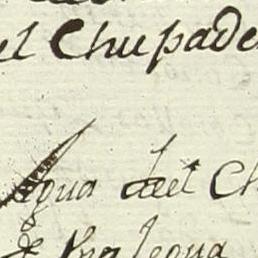 el Chupade
Legua del Ch
de Una legua